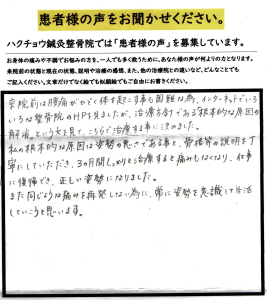 患者様の声をお聞かせください。
ハクチョウ鍼灸整骨院では「患者様の声」を募集しています。
お身体の痛みや不調でお悩みの方を、一人でも多く救うために、あなた様の声が何よりの力となります。
来院前の状態と現在の状態、説明や治療の感想、また、他の治療院との違いなど、どんなことでも
ご記入ください。文章だけでなく絵でも似顔絵でもご自由にお書きください。
来院前は腰痛がひどく体を起こす事も困難な為、インターネットでいろ
いろな整骨院のHPを見ましたが、治療方針である「根本的な原因の
解消」という文を見て、こちらで治療する事に決めました。
私の根本的な原因は姿勢の悪さである事と、骨格等の説明を丁
寧にしていただき、3ヵ月間しっかりと治療すると痛みもなくなり、仕事
に復帰でき、正しい姿勢になりました。
また同じような痛みを再発しない為に、常に姿勢を意識して生活
していこうと思います。